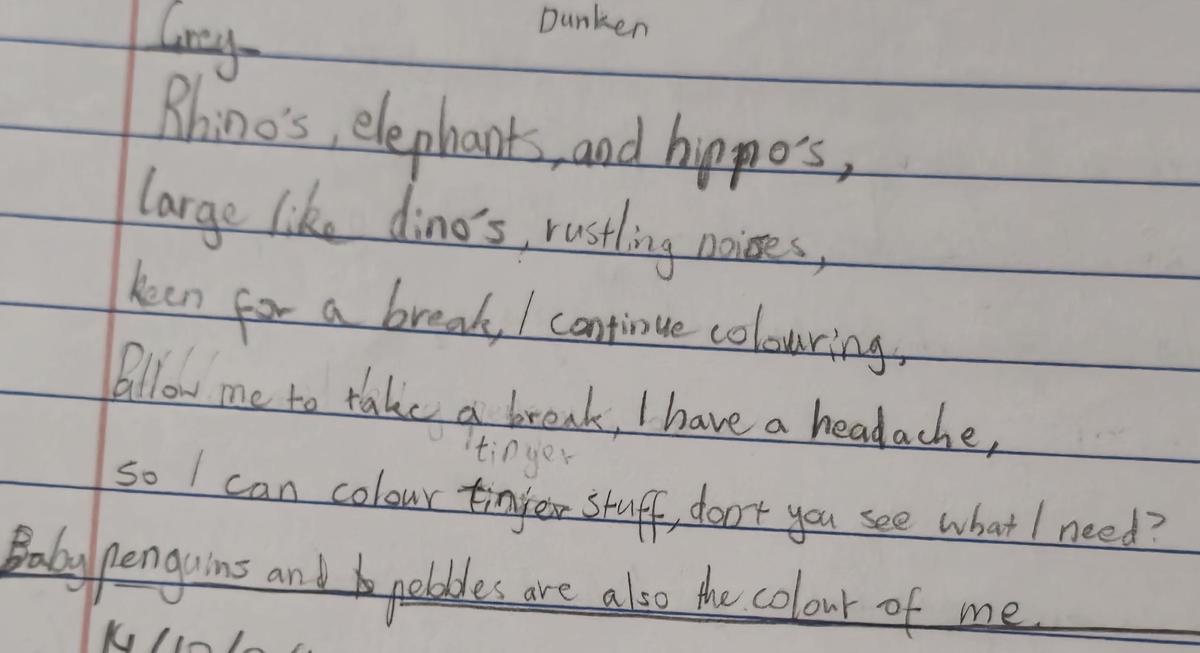 Grey Dunken
Rhino's, elephants, and hippo's,
large like dino's, rustling noises,
keen for a break, I continue colouring,
Allow me to take a break, I have a headache,
tinyer
so I can colour stuff, don't you see what I need?
Baby penguins and pebbles are also the colour of me.